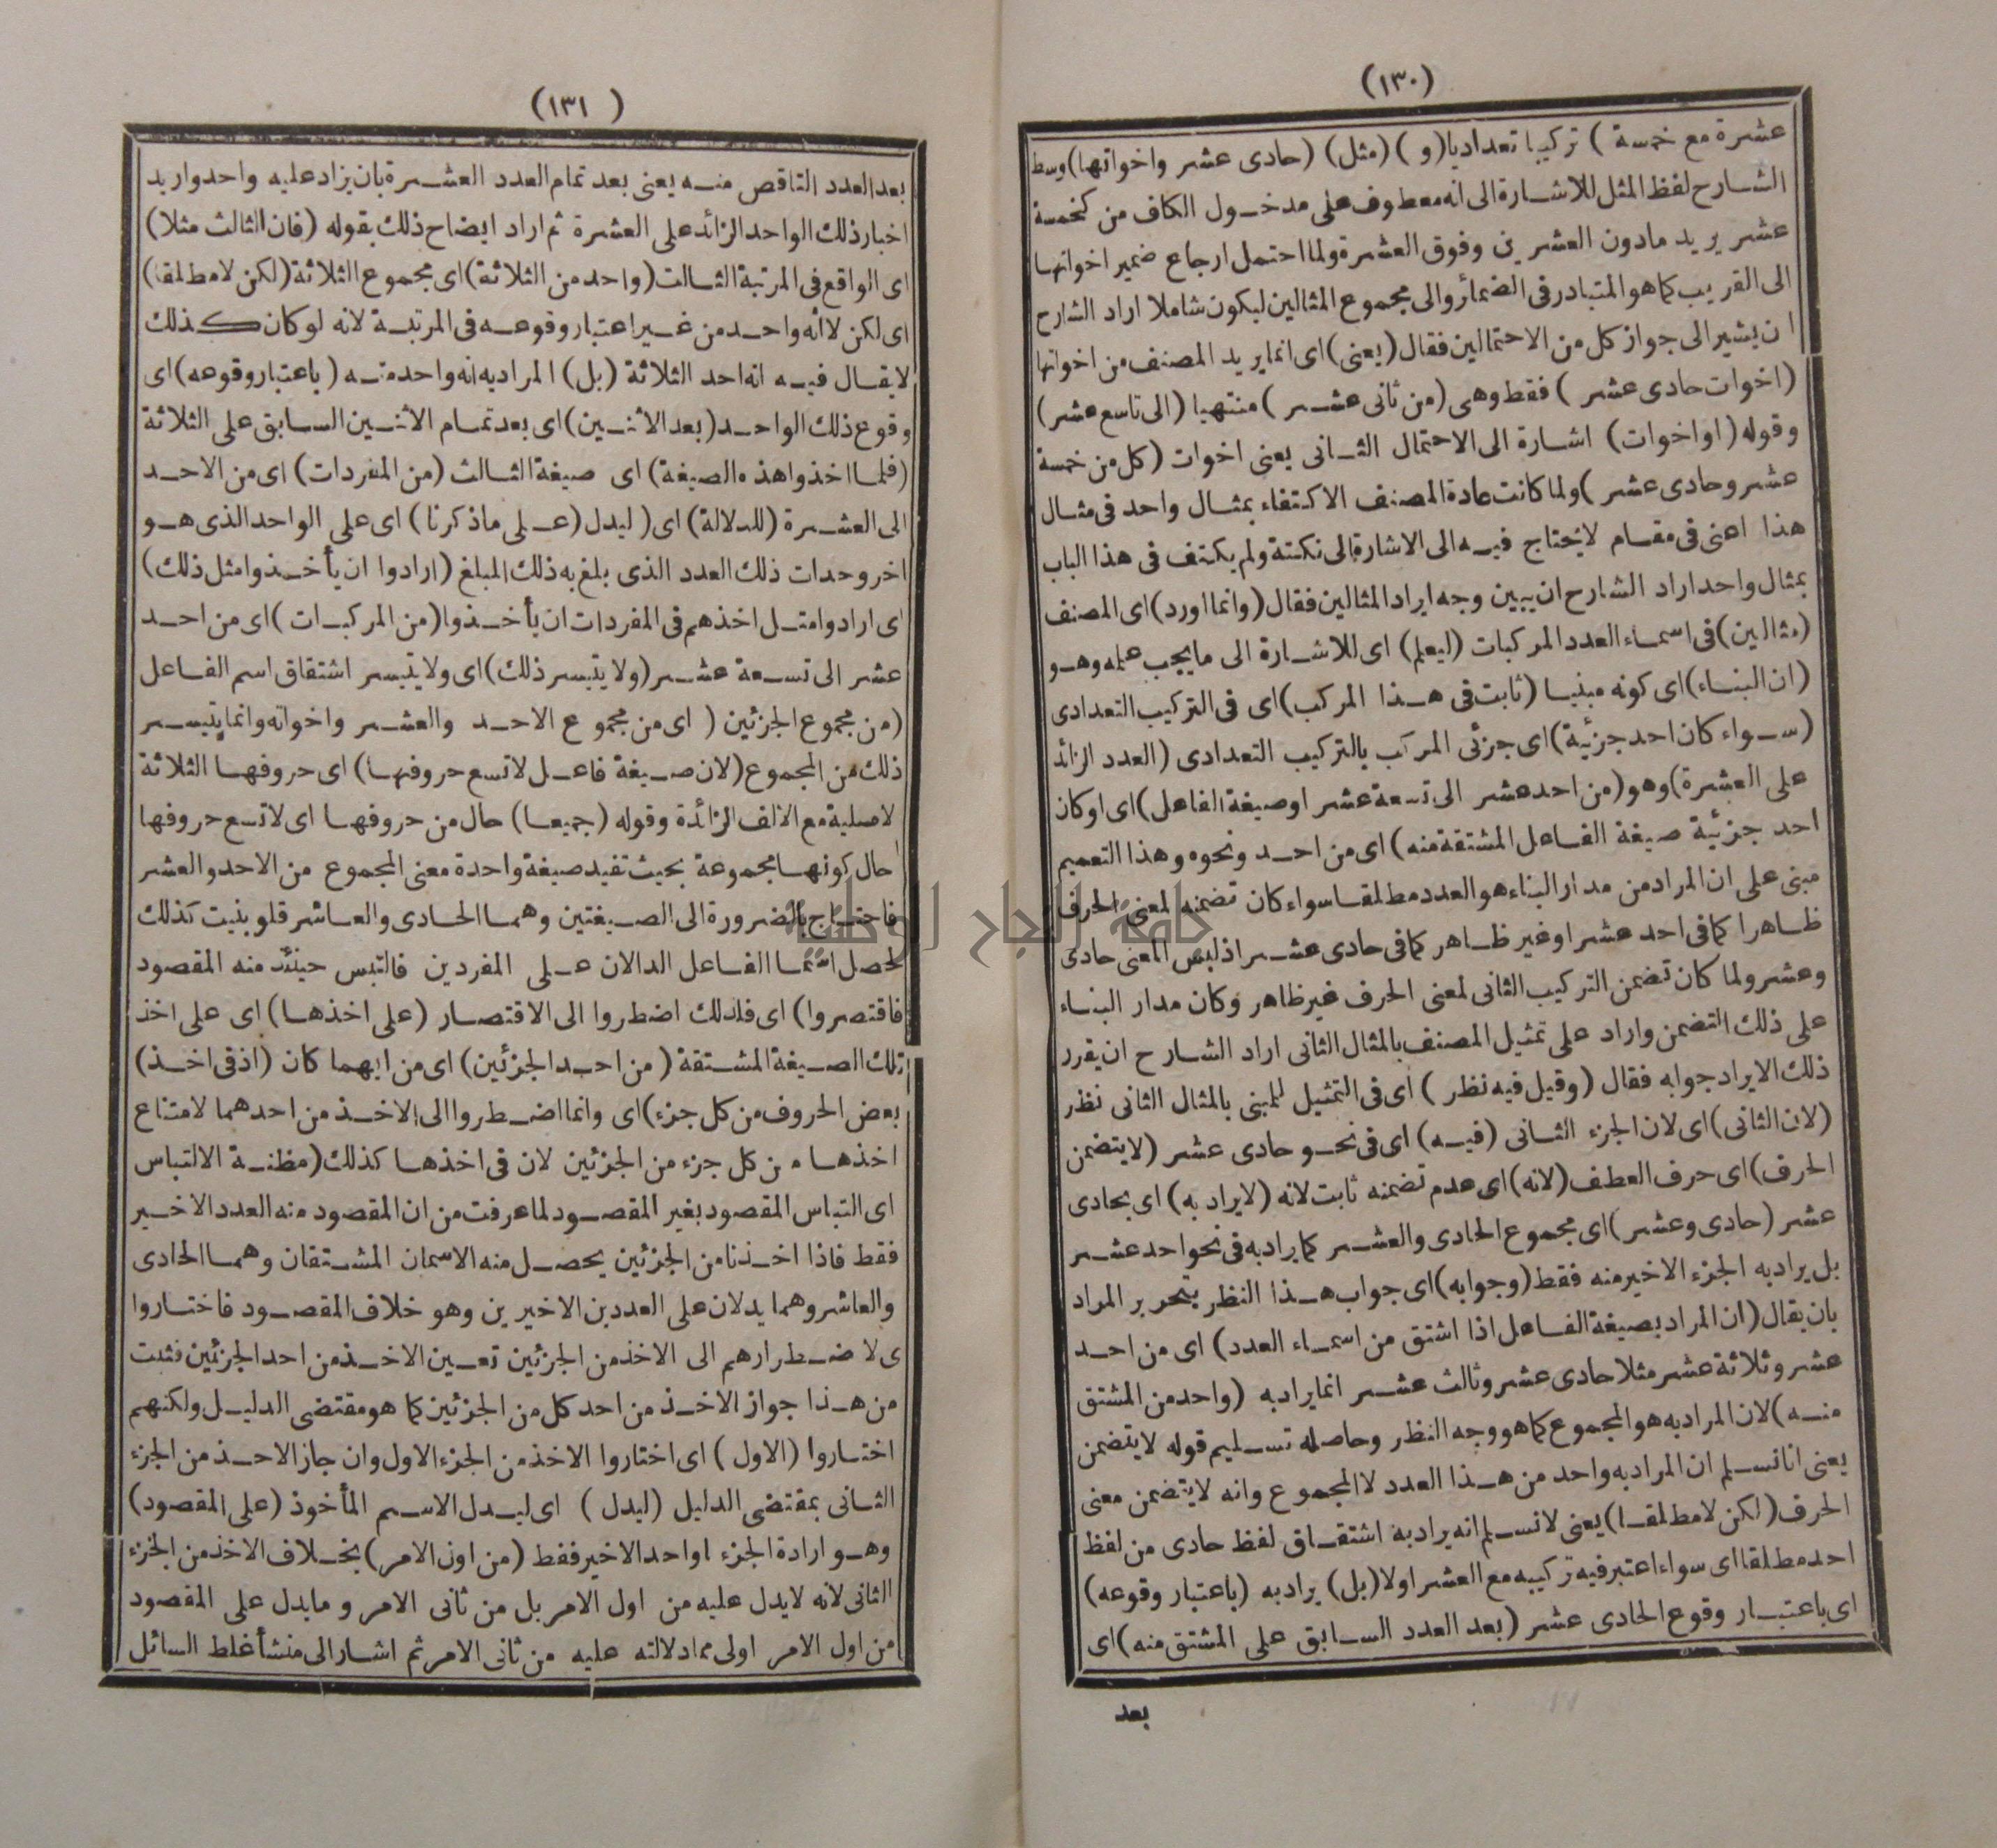 (١٣٠)
عشرة مع خمسة ) تركيبا تعداديا (و) (مثل) (حادى عشر واخواتها) وسط
الشارح لفظ المثل للاشارة الى انه معطوف على مدخول الكاف من كخمسة
عشر يريد مادون العشرين وفوق العشرة ولما احتمل ارجاع ضمير اخواتها
الى القريب كما هو المتبادر فى الضمائر والى مجموع المثالين ليكون شاملا اراد الشارح
ان يشير الى جواز كل من الاحتمالين فقال (يعنى) اى انما يريد المصنف من اخواتها
(اخوات حادى عشر ) فقط وهى (من ثانى عشر ) منتهيا (الى تاسع عشر)
وقوله (او اخوات) اشارة الى الاحتمال الثانى يعنى اخوات (كل من خمسة
عشر وحادى عشر ) ولما كانت عادة المصنف الاكتفاء بمثال واحد فى مثال
هذا اعنى فى مقام لايحتاج فيه الى الاشارة الى نكتة ولم يكتف فى هذا الباب
بمثال واحد اراد الشارح ان يبين وجه ايراد المثالين فقال (وانما اورد) اى المصنف
(مثالين) فى اسماء العدد المركبات (ليعلم) اى للاشارة الى مايجب علمه وهو
(ان البناء) اى كونه مبنيا (ثابت فى هذا المركب) اى فى التركيب التعدادى
(سواء كان احد جزئية) اى جزئى المركب بالتركيب التعدادى (العدد الزائد
على العشرة) وهو (من احد عشر الى تسعة عشر او صيغة الفاعلى) اى او كان
احد جزئية صيغة الفاعل المشتقة منه ) اى من احد ونحوه وهذا التعميم
مبنى على ان المراد من مدار البناء هو العدد مطلقا سواء كان تضمنه لمعنى الحرف
ظاهرا كما فى احد عشر او غير ظاهر كما فى حادى عشر اذ ليس المعنى حادى
وعشر ولما كان تضمن التركيب الثانى لمعنى الحرف غير ظاهر وكان مدار البناء
على ذلك التضمن واراد على تمثيل المصنف بالمثال الثانى اراد الشارح ان يقرر
ذلك الايراد جوابه فقال (وقيل فيه نظر ) اى فى التمثيل للمبنى بالمثال الثانى نظر
(لان الثانى) اى لان الجزء الثانى (فيه) اى فى نحو حادى عشر (لايتضمن
الحرف) اى حرف العطف (لانه) اى عدم تضمنه ثابت لانه (لايراد به) اى بحادى
عشر (حادى وعشر) اى مجموع الحادى والعشر كما يراد به فى نحو احد عشر
بل يراد به الجزء الاخير منه فقط (وجوابه) اى جواب هذا النظر بتحرير المراد
بان يقال (ان المراد بصيغة الفاعل اذا اشتق من اسماء العدد) اى من احد
عشر وثلاثة عشر مثلا حادى عشر وثالث عشر انما يراد به (واحد من المشتق
منه) لان المراد به هو المجموع كما هو وجه النظر وحاصله تسليم قوله لايتضمن
يعنى انا نسلم ان المراد به واحد من هذا العدد لا المجموع وانه لايتضمن معنى
الحرف (لكن لا مطلقا) يعنى لا نسلم انه يراد به اشتقاق لفظ حادى من لفظ
احد مطلقا اى سواء اعتبر فيه تركيبه مع العشر اولا (بل) يراد به (باعتبار وقوعه)
اى باعتبار وقوع الحادى عشر (بعد العدد السابق على المشتق منه) اى
بعد
(١٣١)
بعد العدد الناقص منه يعنى بعد تمام العدد العشرة بان يزاد عليه واحد واريد
اخبار ذلك الواحد الزائد على العشرة ثم اراد ايضاح ذلك بقوله (فان الثالث مثلا)
اى الواقع فى المرتبة الثالث (واحد من الثلاثة) اى مجموع الثلاثة (لكن لامطلقا)
اى لكن لا انه واحد من غير اعتبار وقوعه فى المرتبة لانه لو كان كذلك
لا يقال فيه انه احد الثلاثة (بل) المراد به انه واحد منه (باعتبار وقوعه) اى
وقوع ذلك الواحد (بعد الاثنين) اى بعد تمام الاثنين السابق على الثلاثة
(فلما اخذوا هذه الصيغة) اى صيغة الثالث (من المفردات) اى من الاحد
الى العشرة (للدلالة) اى (ليدل (على ماذكرنا) اى على الواحد الذى هو
اخر وحدات ذلك العدد الذى بلغ به ذلك المبلغ (ارادوا ان يأخذوا مثل ذلك)
اى ارادوا مثل اخذهم فى المفردات ان يأخذوا (من المركبات) اى من احد
عشر الى تسعة عشر (ولا يتيسر ذلك) اى ولا يتيسر اشتقاق اسم الفاعل
(من مجموع الجزئين ( اى من مجموع الاحد والعشر واخواته وانما يتيسر
ذلك من المجموع (لان صيغة فاعل لاتسع حروفها) اى حروفها الثلاثة
لاصلية مع الالف الزائدة وقوله (جميعا) حال من حروفها اى لاتسع حروفها
حال كونها مجموعة بحيث تفيد صيغة واحدة معنى المجموع من الاحد والعشر
فاحتاج بالضرورة الى الصيغتين وهما الحادى والعاشر فلو بنيت كذلك
لحصل اسما الفاعل الدالان على المفردين فالتبس حينئذ منه المقصود
فاقتصروا) اى فلذلك اضطروا الى الاقتصار (على اخذها) اى على اخذ
تلك الصيغة المشتقة (من احد الجزئين) اى من ايهما كان (اذ فى اخذ)
بعض الحروف من كل جزء) اى وانما اضطروا الى الاخذ من احدهما لامتناع
اخذها من كل جزء من الجزئين لان فى اخذها كذلك (مظنة الالتباس
اى التباس المقصود بغير المقصود لما عرفت من ان المقصود منه العدد الاخير
فقط فاذا اخذنا من الجزئين يحصل منه الاسمان المشتقان وهما الحادى
والعاشر وهما يدلان على العددين الاخيرين وهو خلاف المقصود فاختاروا
ى لا ضطرارهم الى الاخذ من الجزئين تعيين الاخذ من احد الجزئين فثبت
من هذا جواز الاخذ من احد كل من الجزئين كما هو مقتضى الدليل ولكنهم
اختاروا (الاول) اى اختاروا الاخذ من الجزء الاول وان جاز الاخذ من الجزء
الثانى بمقتضى الدليل (ليدل ) اى ليدل الاسم المأخوذ (على المقصود)
وهو ارادة الجزء اواحد الاخير فقط (من اول الامر) بخلاف الاخذ من الجزء
الثانى لانه لايدل عليه من اول الامر بل من ثانى الامر و مايدل على المقصود
من اول الامر اولى مما دلالته عليه من ثانى الامر ثم اشار الى منشأ غلط السائل
جامعة النجاح الوطنية